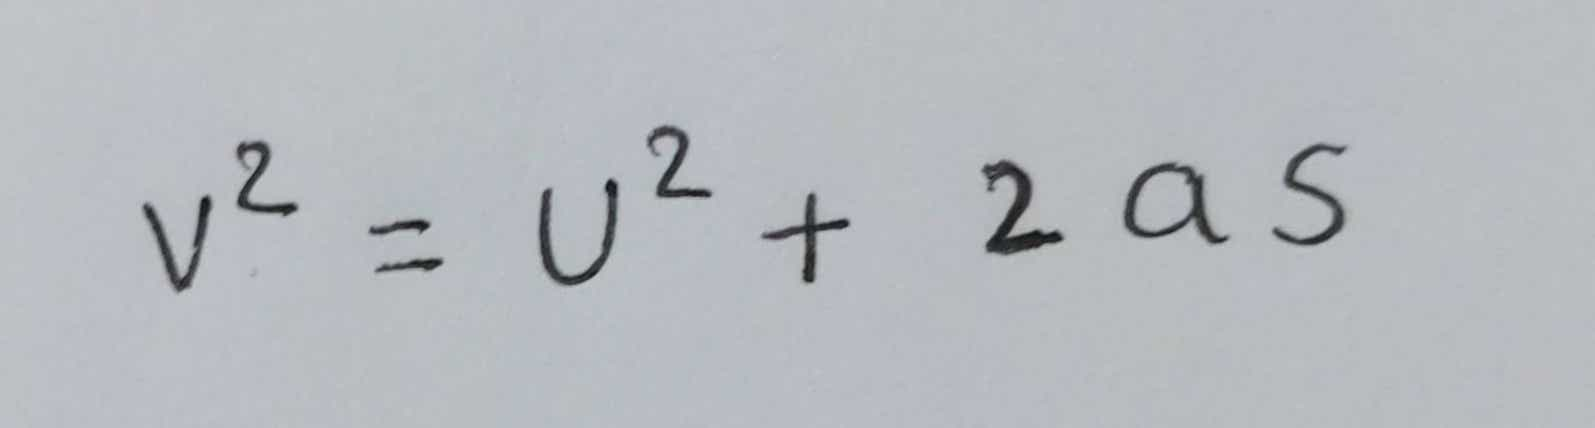 v² = u² + 2 a s